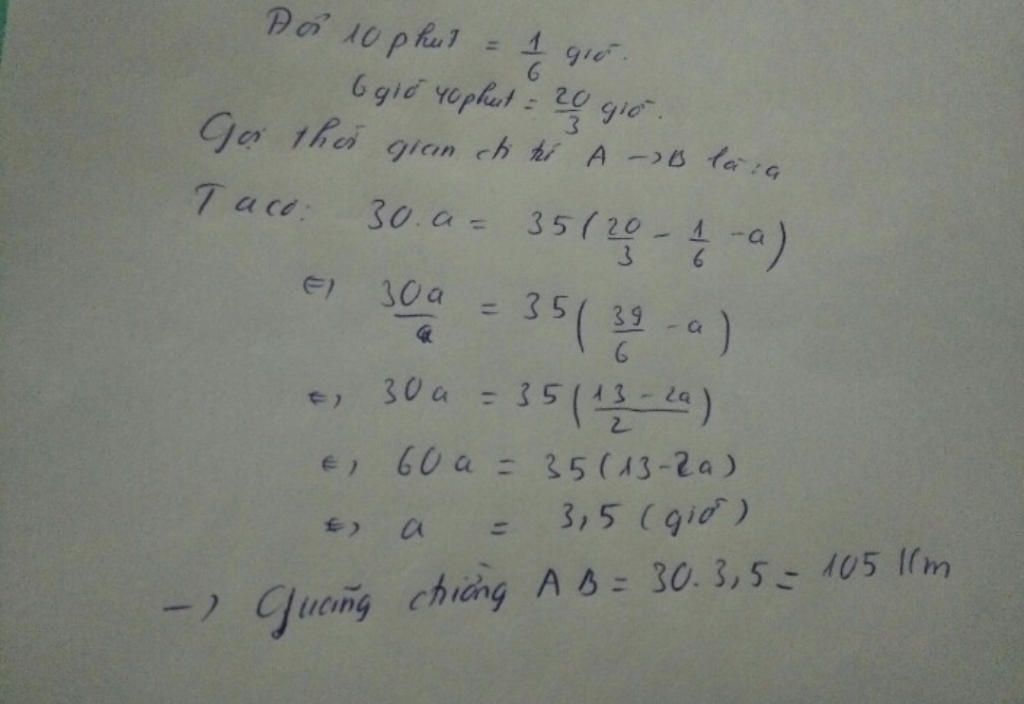 Đổi 10 phút = 1/6 giờ.
6 giờ 40 phút = 20/3 giờ.
Gọi thời gian đi từ A → B là : a
Ta có: 30.a = 35(20/3 - 1/6 - a)
⇔ 30a/a = 35(39/6 - a)
⇔ 30a = 35(13-2a/2)
⇔ 60a = 35(13-2a)
⇔ a = 3,5 (giờ)
→ Quãng đường AB = 30.3,5 = 105 km